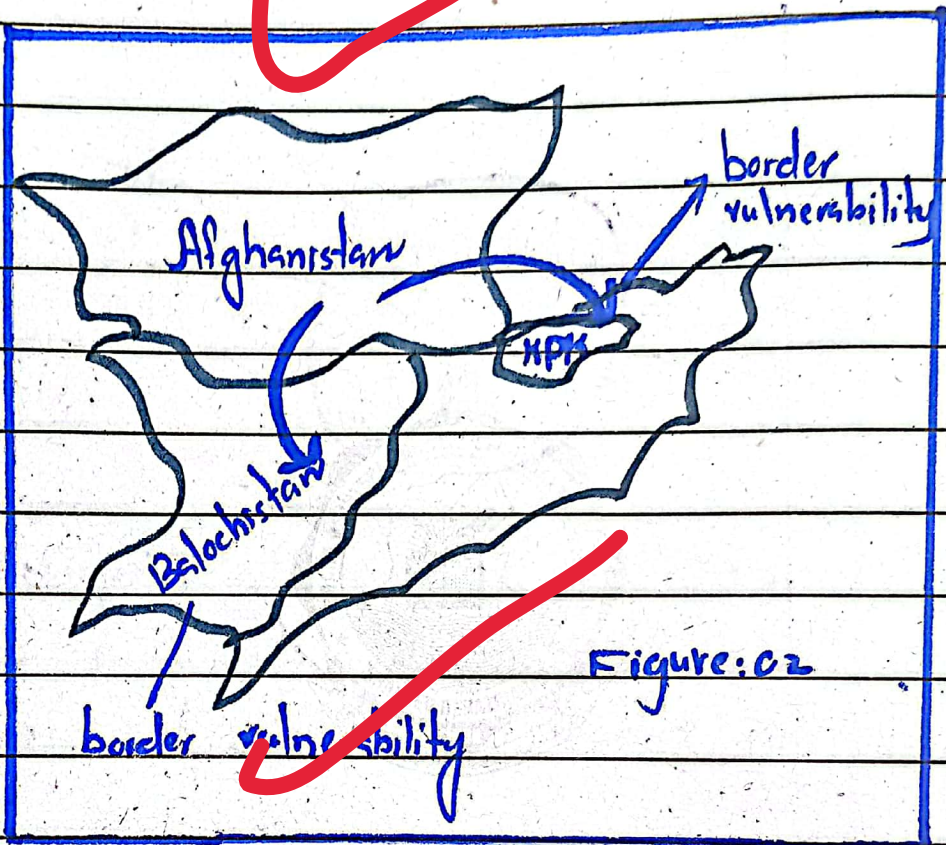 border
vulnerability
Afghanistan
KPK
Balochistan
Figure: 02
border vulnerability